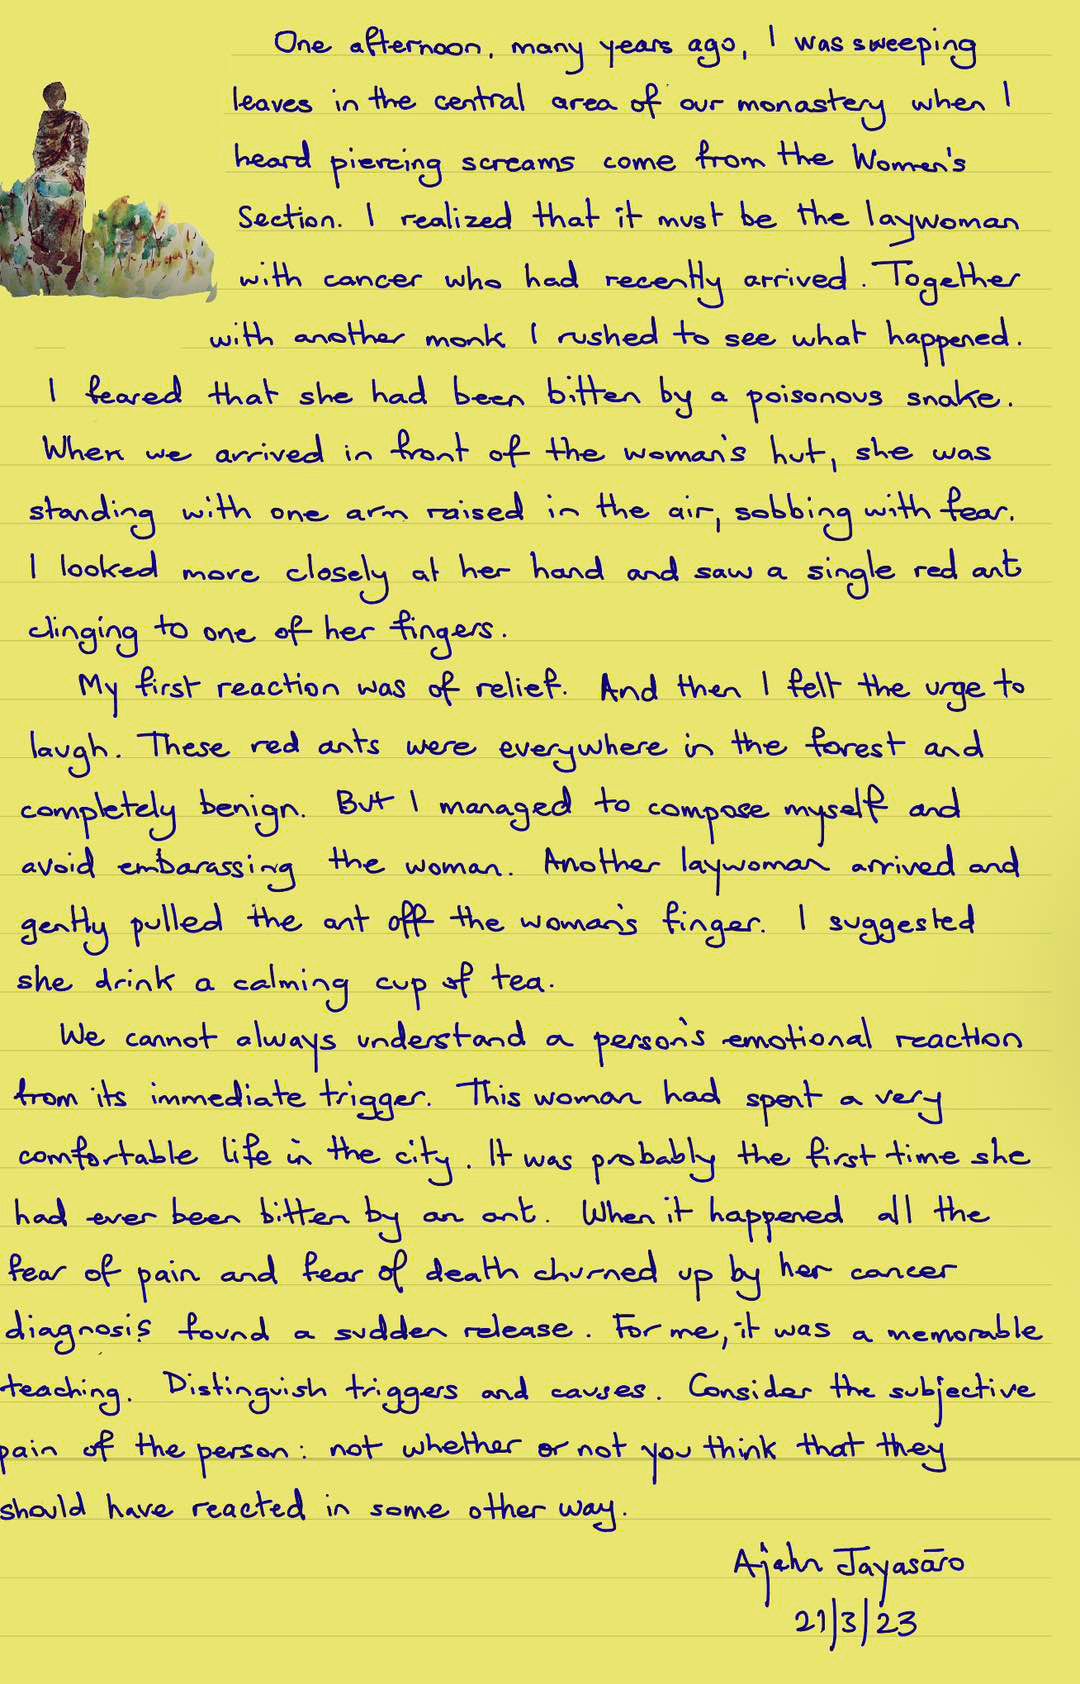 One afternoon, many years ago, I was sweeping
leaves in the central area of our monastery when I
heard piercing screams come from the Women's
Section. I realized that it must be the laywoman
with cancer who had recently arrived. Together
with another monk I rushed to see what happened.
I feared that she had been bitten by a poisonous snake.
When we arrived in front of the woman's hut, she was
standing with one arm raised in the air, sobbing with fear.
I looked more closely at her hand and saw a single red ant
clinging to one of her fingers.
My first reaction was of relief. And then I felt the urge to
laugh. These red ants were everywhere in the forest and
completely benign. But I managed to compose myself and
avoid embarassing the woman. Another laywoman arrived and
gently pulled the ant off the woman's finger. I suggested
she drink a calming cup of tea.
We cannot always understand a person's emotional reaction
from its immediate trigger. This woman had spent a very
comfortable life in the city. It was probably the first time she
had ever been bitten by an ant. When it happened all the
fear of pain and fear of death churned up by her cancer
diagnosis found a sudden release. For me, it was a memorable
teaching. Distinguish triggers and causes. Consider the subjective
pain of the person: not whether or not you think that they
should have reacted in some other way.
Ajahn Jayasāro
21/3/23